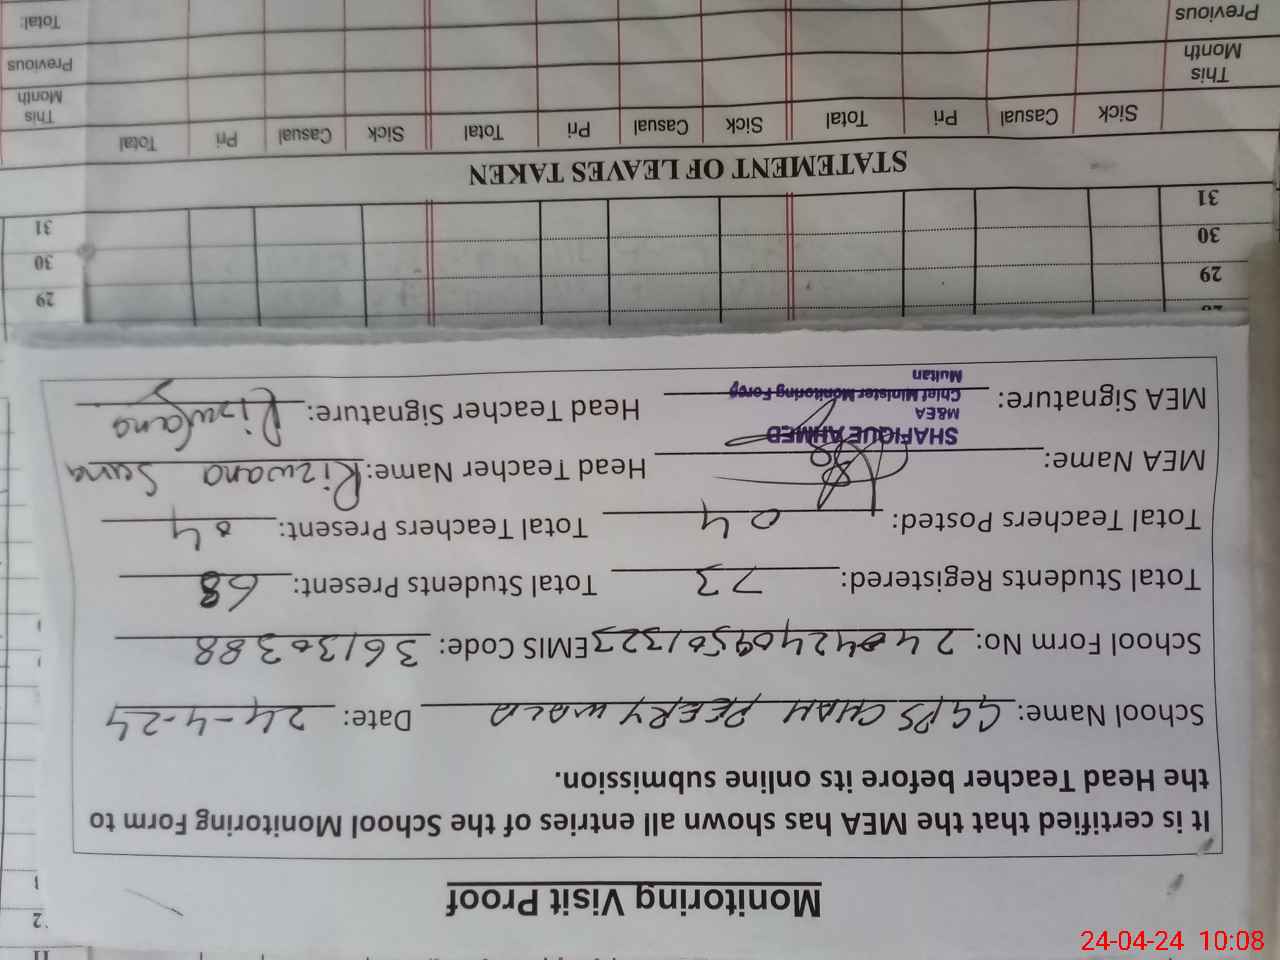 Monitoring Visit Proof
It is certified that the MEA has shown all entries of the School Monitoring Form to
the Head Teacher before its online submission.
School Name: GGPS CHAH PEERY WALA Date: 24-4-24
School Form No: 24042409501323 EMIS Code: 36130388
Total Students Registered: 73 Total Students Present: 68
Total Teachers Posted: 04 Total Teachers Present: 04
MEA Name: Head Teacher Name: Rizwana
SHAFIQUE AHMED
M&EA
MEA Signature: Head Teacher Signature: Rizwana
Chief Minister Monitoring Force
Multan
29 29
30 30
31 31
STATEMENT OF LEAVES TAKEN
Sick Casual Pri Total Sick Casual Pri Total Sick Casual Pri Total
This Month This Month
Previous Previous
Total:
24-04-24 10:08